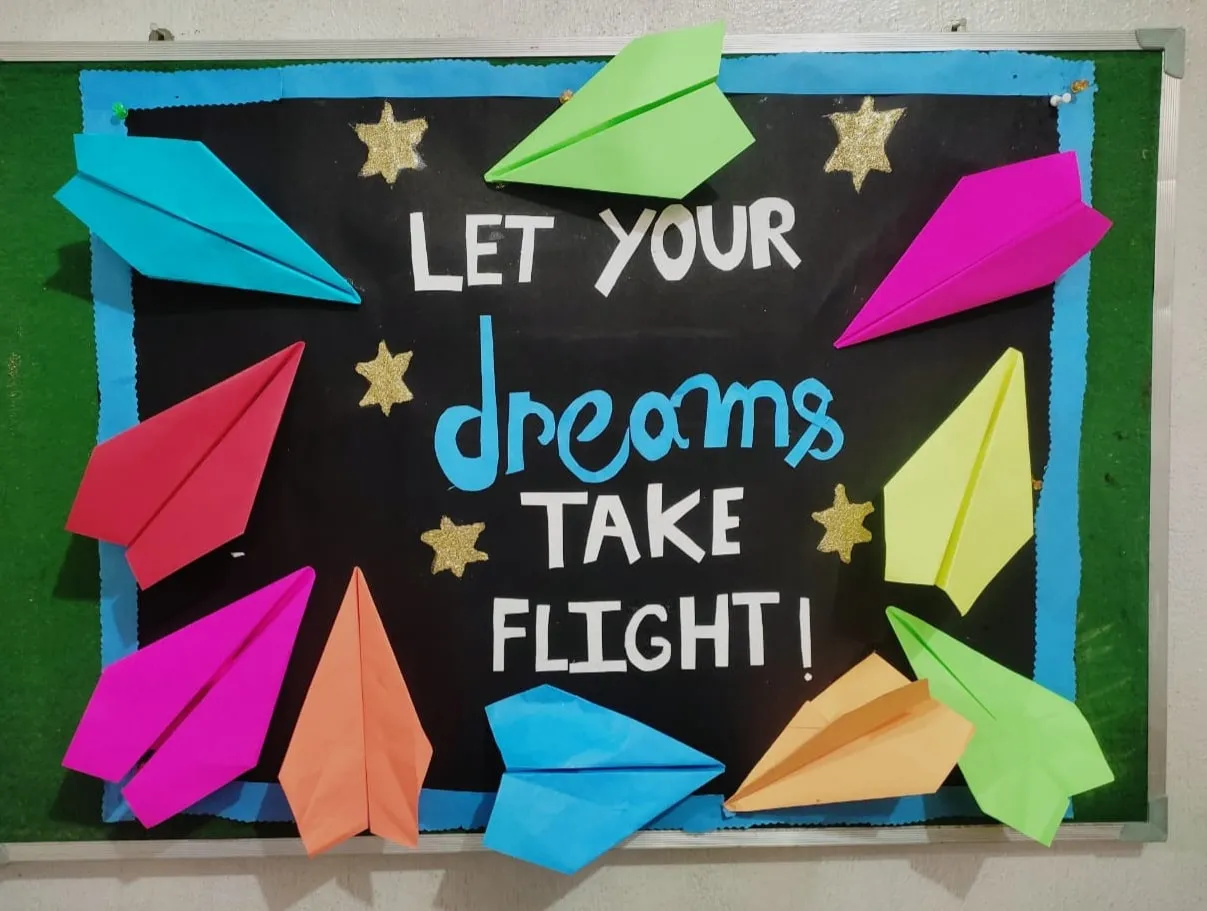 LET YOUR
dreams
TAKE
FLIGHT!